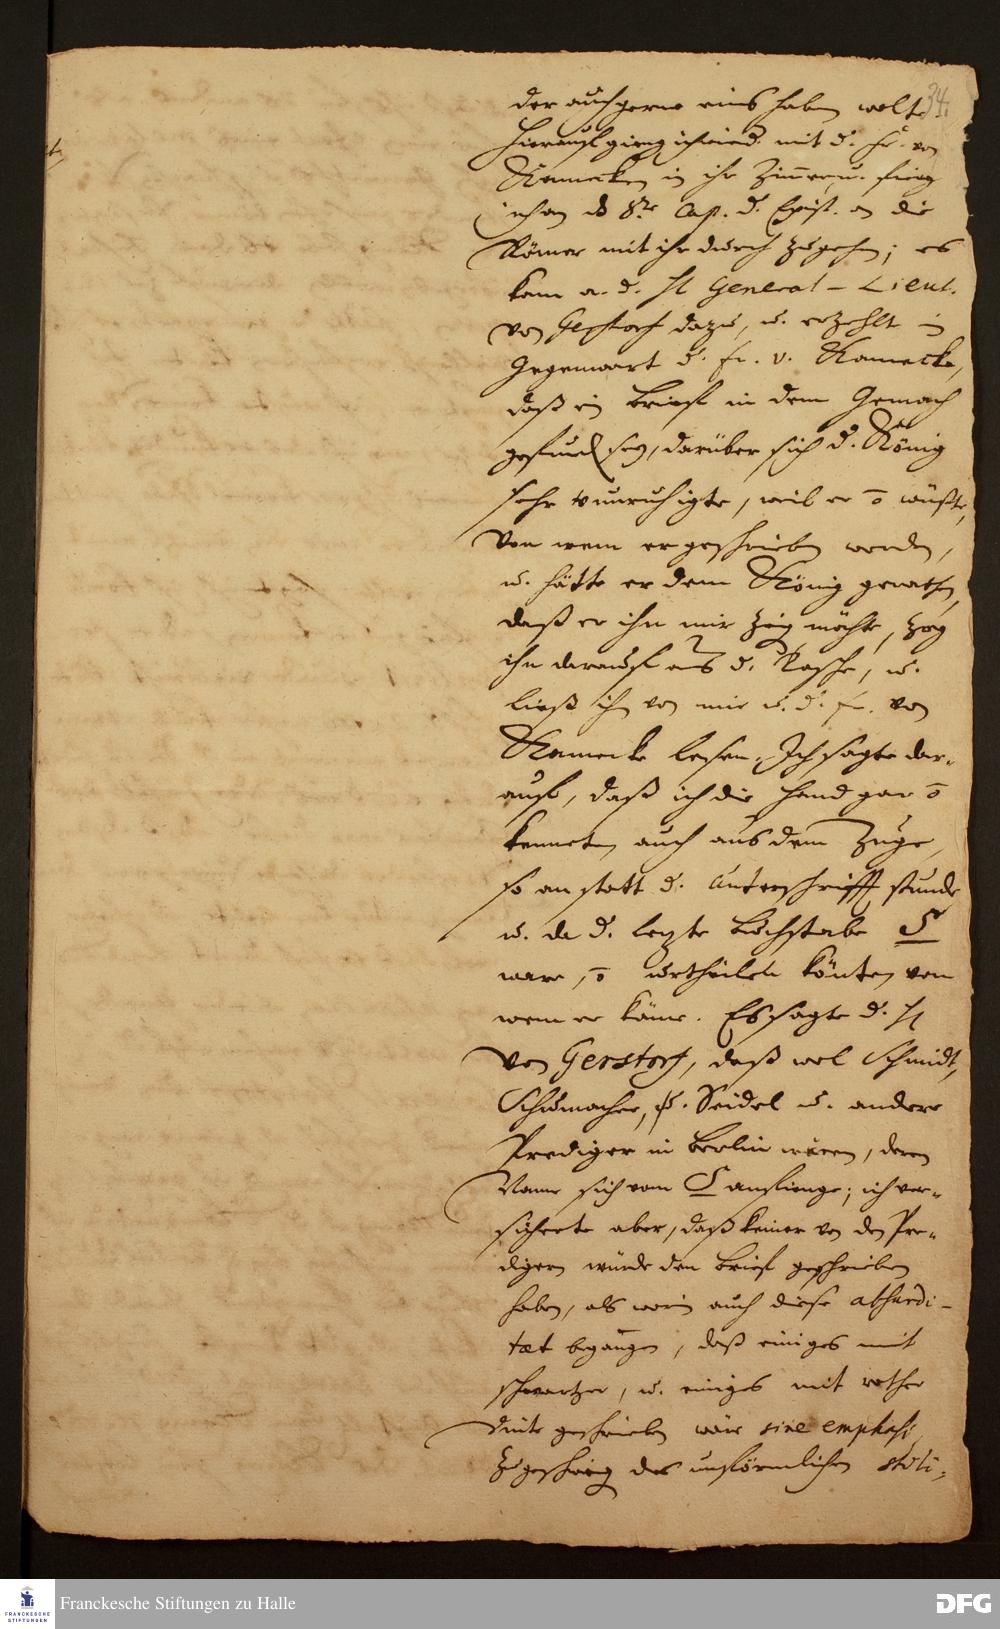 34.
der auch gerne eins haben wolte
Hierauf gieng ich wied. mit d. Fr. von
Kamecken in ihr Zimmer, u. fieng
schon dz 8te Cap. d. Epist. an die
Römer mit ihr durch zugehen; es
kam a. d. H General-Lieut.
von Gerstorf dazu, u. erzehlt in
Gegenwart d. Fr. v. Kamecke,
daß ein Brief in dem Gemach
gefunden sey, darüber sich d. König
sehr verunruhigte, weil er o wüste,
von wem er geschrieben worden,
u. hätte er dem König gerathen,
daß er ihn mir zeigen möchte, zog
ihn darauf aus d. Tasche, u.
ließ ihn von mir u. d. Fr. von
Kamecke lesen. Ich sagte dar-
auf, daß ich die Hand gar o
kennete, auch aus dem Zuge,
so an statt d. Unterschrifft stunde
u. da d. letzte Buchstabe S
ware, o urtheilen könten von
wem er käme. Es sagte d. H
von Gerstorf, daß wol Schmidt,
Schumacher, H. Seidel u. andere
Prediger in Berlin wären, deren
Name sich vom S anfienge; ich ver-
sicherte aber, daß keiner von den Pre-
digern würde den Brief geschrieben
haben, als worin auch diese absurdi-
tæt begangen, daß einiges mit
schwartzer, u. einiges mit rother
Dinte geschrieben wäre sine emphasi
des unförmlichen stili,
Franckesche Stiftungen zu Halle
FRANCKESCHE STIFTUNGEN
DFG